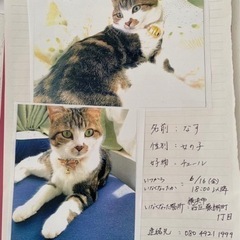 名前 : なす
性別 : 女の子
好物 : チュール
いつから
いなくなったか
6/16(金)
18:00以降
横浜市
いなくなった場所:
丁目
連絡先 : 080 4421 1999